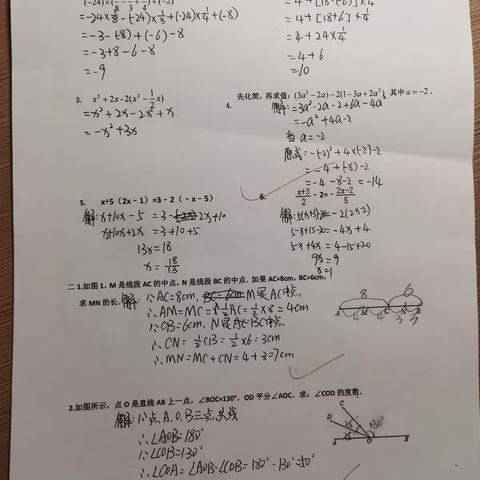 =-24×1/8-(-24)×1/3+(-24)×1/4+(-8)
=-3-(-8)+(-6)-8
=-3+8-6-8
=-9
=4+[18+6]×1/4
=4+24×1/4
=4+6
=10
3. x²+2x-2(x²-1/2x)
=x²+2x-2x²+x
=-x²+3x
4. 先化简，再求值：(3a²-2a)-2(1-3a+2a²)，其中a=-2．
解:=3a²-2a-2+6a-4a²
=-a²+4a-2
当a=-2
原式=-(-2)²+4×(-2)-2
=-4+(-8)-2
=-4-8-2=-14
5. x+5（2x-1）=3-2（-x-5）
解:x+10x-5=3+2x+10
x+10x+2x=3+10+5
13x=18
x=18/13
6. (x+3)/2-2=-(2x-2)/5
5-x+15-20=-4x+4
5-x+4x=4-15+20
9x=9
x=1
二 1.如图1，M是线段AC的中点，N是线段BC的中点．如果AC=8cm，BC=6cm，
求MN的长．解:∵AC=8cm, M是AC中点
∴AM=MC=1/2AC=1/2×8=4cm
∵CB=6cm, N是BC中点
∴CN=1/2CB=1/2×6=3cm
∴MN=MC+CN=4+3=7cm
8 6
4 4 3 3
2.如图所示，点O是直线AB上一点，∠BOC=130°，OD平分∠AOC．求：∠COD的度数．
解:∵点A,O,B三点共线
∴∠AOB=180°
∵∠COB=130°
∴∠COA=∠AOB-∠COB=180°-130°=50°
C
D
25°
25°
130°
A O B